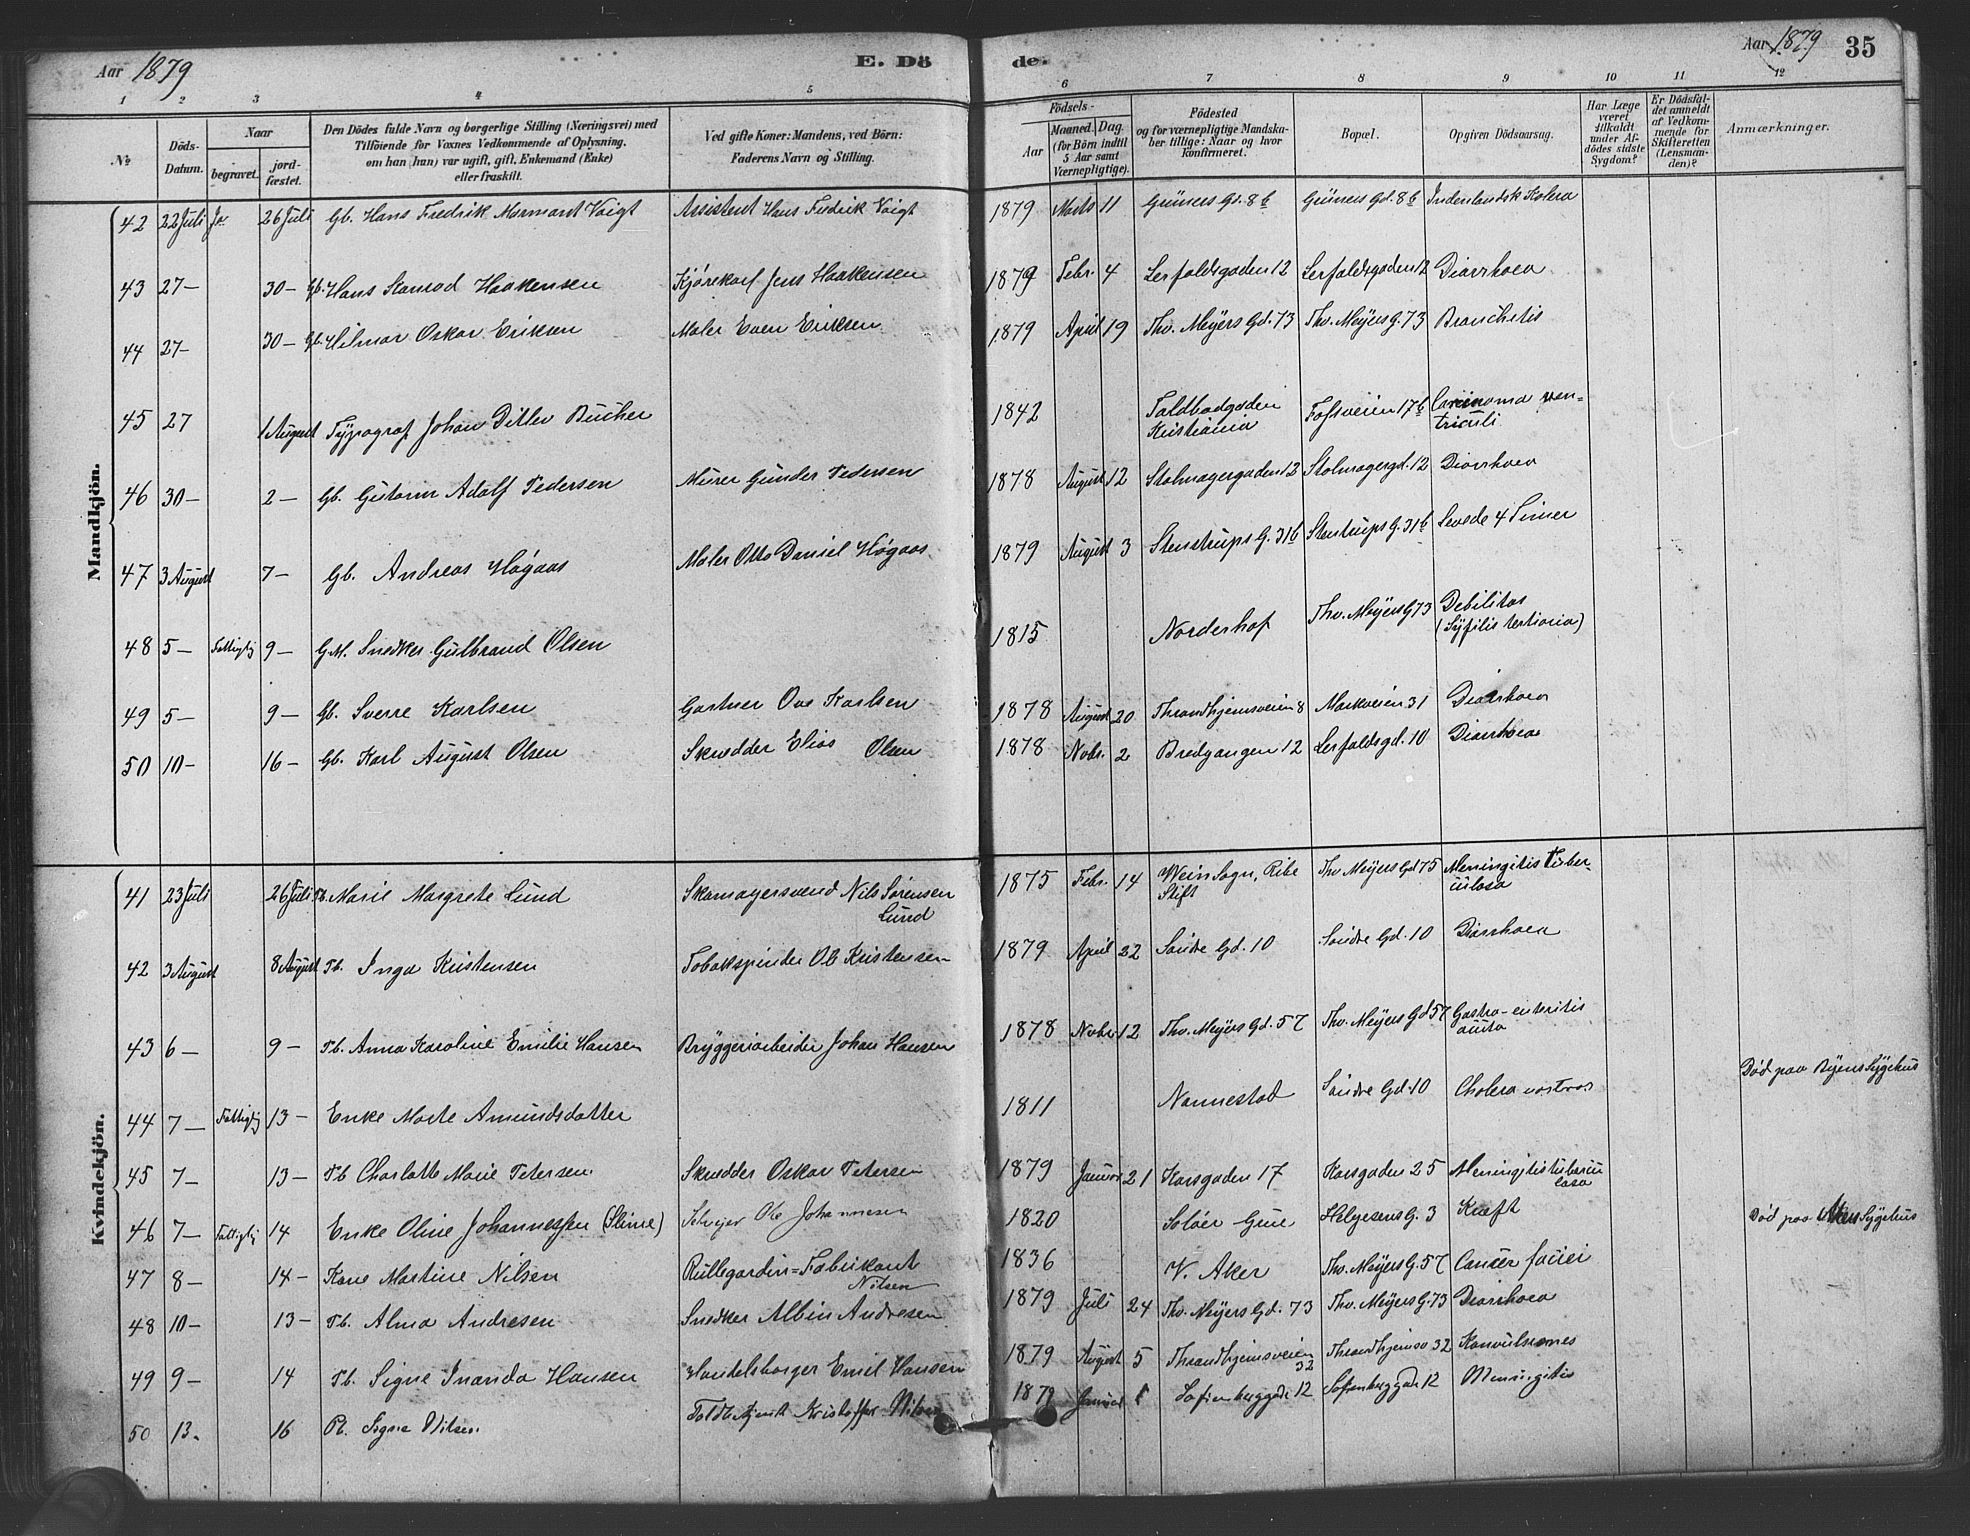 Aar 1879 E. Dö de. Aar 1879 35
1 2 3 4 5 6 7 8 9 10 11 12
No Döds-Datum. Naar begravet. jord-fæstet. Den Dödes fulde Navn og borgerlige Stilling (Næringsvei) med Tilföiende for Voxnes Vedkommende af Oplysning, om han (hun) var ugift, gift, Enkemand (Enke) eller fraskilt. Ved gifte Koner: Mandens, ved Börn: Faderens Navn og Stilling. Födsels- Aar Maaned. Dag. (for Börn indtil 5 Aar samt Værnepligtige). Födested og for værnepligtige Mandska-ber tillige: Naar og hvor konfirmeret. Bopæl. Opgiven Dödsaarsag. Har Læge været tilkaldt under Af-dödes sidste Sygdom? Er Dödsfal-det anmeldt af Vedkom-mende for Skifteretten (Lensman-den)? Anmærkninger.
Mandkjön.
42 22 Juli Ja 26 Juli Gb. Hans Fredrik Marmont Voigt Assistent Hans Fredrik Voigt 1879 Marts 11 Grüners Gd. 8b Grüners Gd. 8b Indenlandsk Kolera
43 27— 30— Gb. Hans Konrad Haakensen Kjørekarl Jens Haakensen 1879 Febr. 4 Lerfaldsgaden 12 Lerfaldsgaden 12 Diarrhoea
44 27— 30— Gb. Hilmar Oskar Eriksen Maler Even Eriksen 1879 April 19 Thv. Meyers Gd. 73 Thv. Meyers G. 73 Bronchitis
45 27 1 August Typograf Johan Ditlev Bucher 1842 Toldbodgaden Kristiania Fossveien 17b Carcinoma ven-triculi
46 30— 2— Gb. Gustav Adolf Pedersen Murer Gunder Pedersen 1878 August 12 Stolmagergaden 12 Stolmagergd. 12 Diarrhoea
47 3 August 7— Gb. Andreas Høgaas Maler Otto Daniel Høgaas 1879 August 3 Stenstrups G. 31b Stenstrups G. 31b Levede 4 Timer
48 5— Fattiglig 9— G.M. Snedker Gulbrand Olsen 1815 Norderhof Thv. Meyers G 73 Debilitas (Syfilis tertiaria)
49 5— 9— Gb. Sverre Karlsen Gartner Ove Karlsen 1878 August 20 Throndhjemsveien 8 Markveien 31 Diarrhoea
50 10— 16— Gb. Karl August Olsen Skrædder Elias Olsen 1878 Novbr. 2 Bredgangen 12 Lerfaldsgd. 10 Diarrhoea
Kvindekjön.
41 23 Juli 26 Juli Pb. Marie Margrete Lund Skomagersvend Nils Sørensen Lund 1875 Febr. 14 Wein Sogn, Ribe Stift Thv Meyers Gd 75 Meningitis Tuber-culosa
42 3 August 8 August Pb. Inga Kristensen Tobakspinder Ole Kristensen 1879 April 22 Søndre Gd. 10 Søndre Gd. 10 Diarrhoea
43 6— 9— Pb. Anna Karoline Emilie Hansen Bryggeriarbeider Johan Hansen 1878 Novbr. 12 Thv. Meyers Gd. 57 Thv. Meyers Gd 57 Gastro-enteritis acuta
44 7— Fattiglig 13— Enke Marte Amundsdatter 1811 Nannestad Søndre Gd. 10 Cholera nostras Død paa Byens Sygehus
45 7— 13— Pb Charlotte Marie Petersen Skrædder Oskar Petersen 1879 Januar 21 Korsgaden 17 Korsgaden 25 Meningitis tubercu losa
46 7— Fattiglig 14 Enke Oline Johannessen (Stime) Ole Johannesen 1820 Soløer Grue Helgesens G. 3 Kræft Død paa Akers Sygehus
47 8— 14— Kone Martine Nilsen Rullegardin=Fabrikant Nilsen 1836 V. Aker Thv. Meyers G. 57 Cancer faciei
48 10— 13— Pb. Alma Andresen Snedker Albin Andresen 1879 Juli 24 Thv. Meyers Gd. 73 Thv. Meyers G. 73 Diarrhoea
49 9— 14 Pb. Signe Inanda Hansen Handelsborger Emil Hansen 1879 August 5 Throndhjemsveien 32 Throndhjemsv 32 Konvulsiones
50 13. 16 Pb. Signe Nilsen Kristoffer Nilsen 1879 Januar Sofienberggade 12 Sofienberggade 12 Meningitis